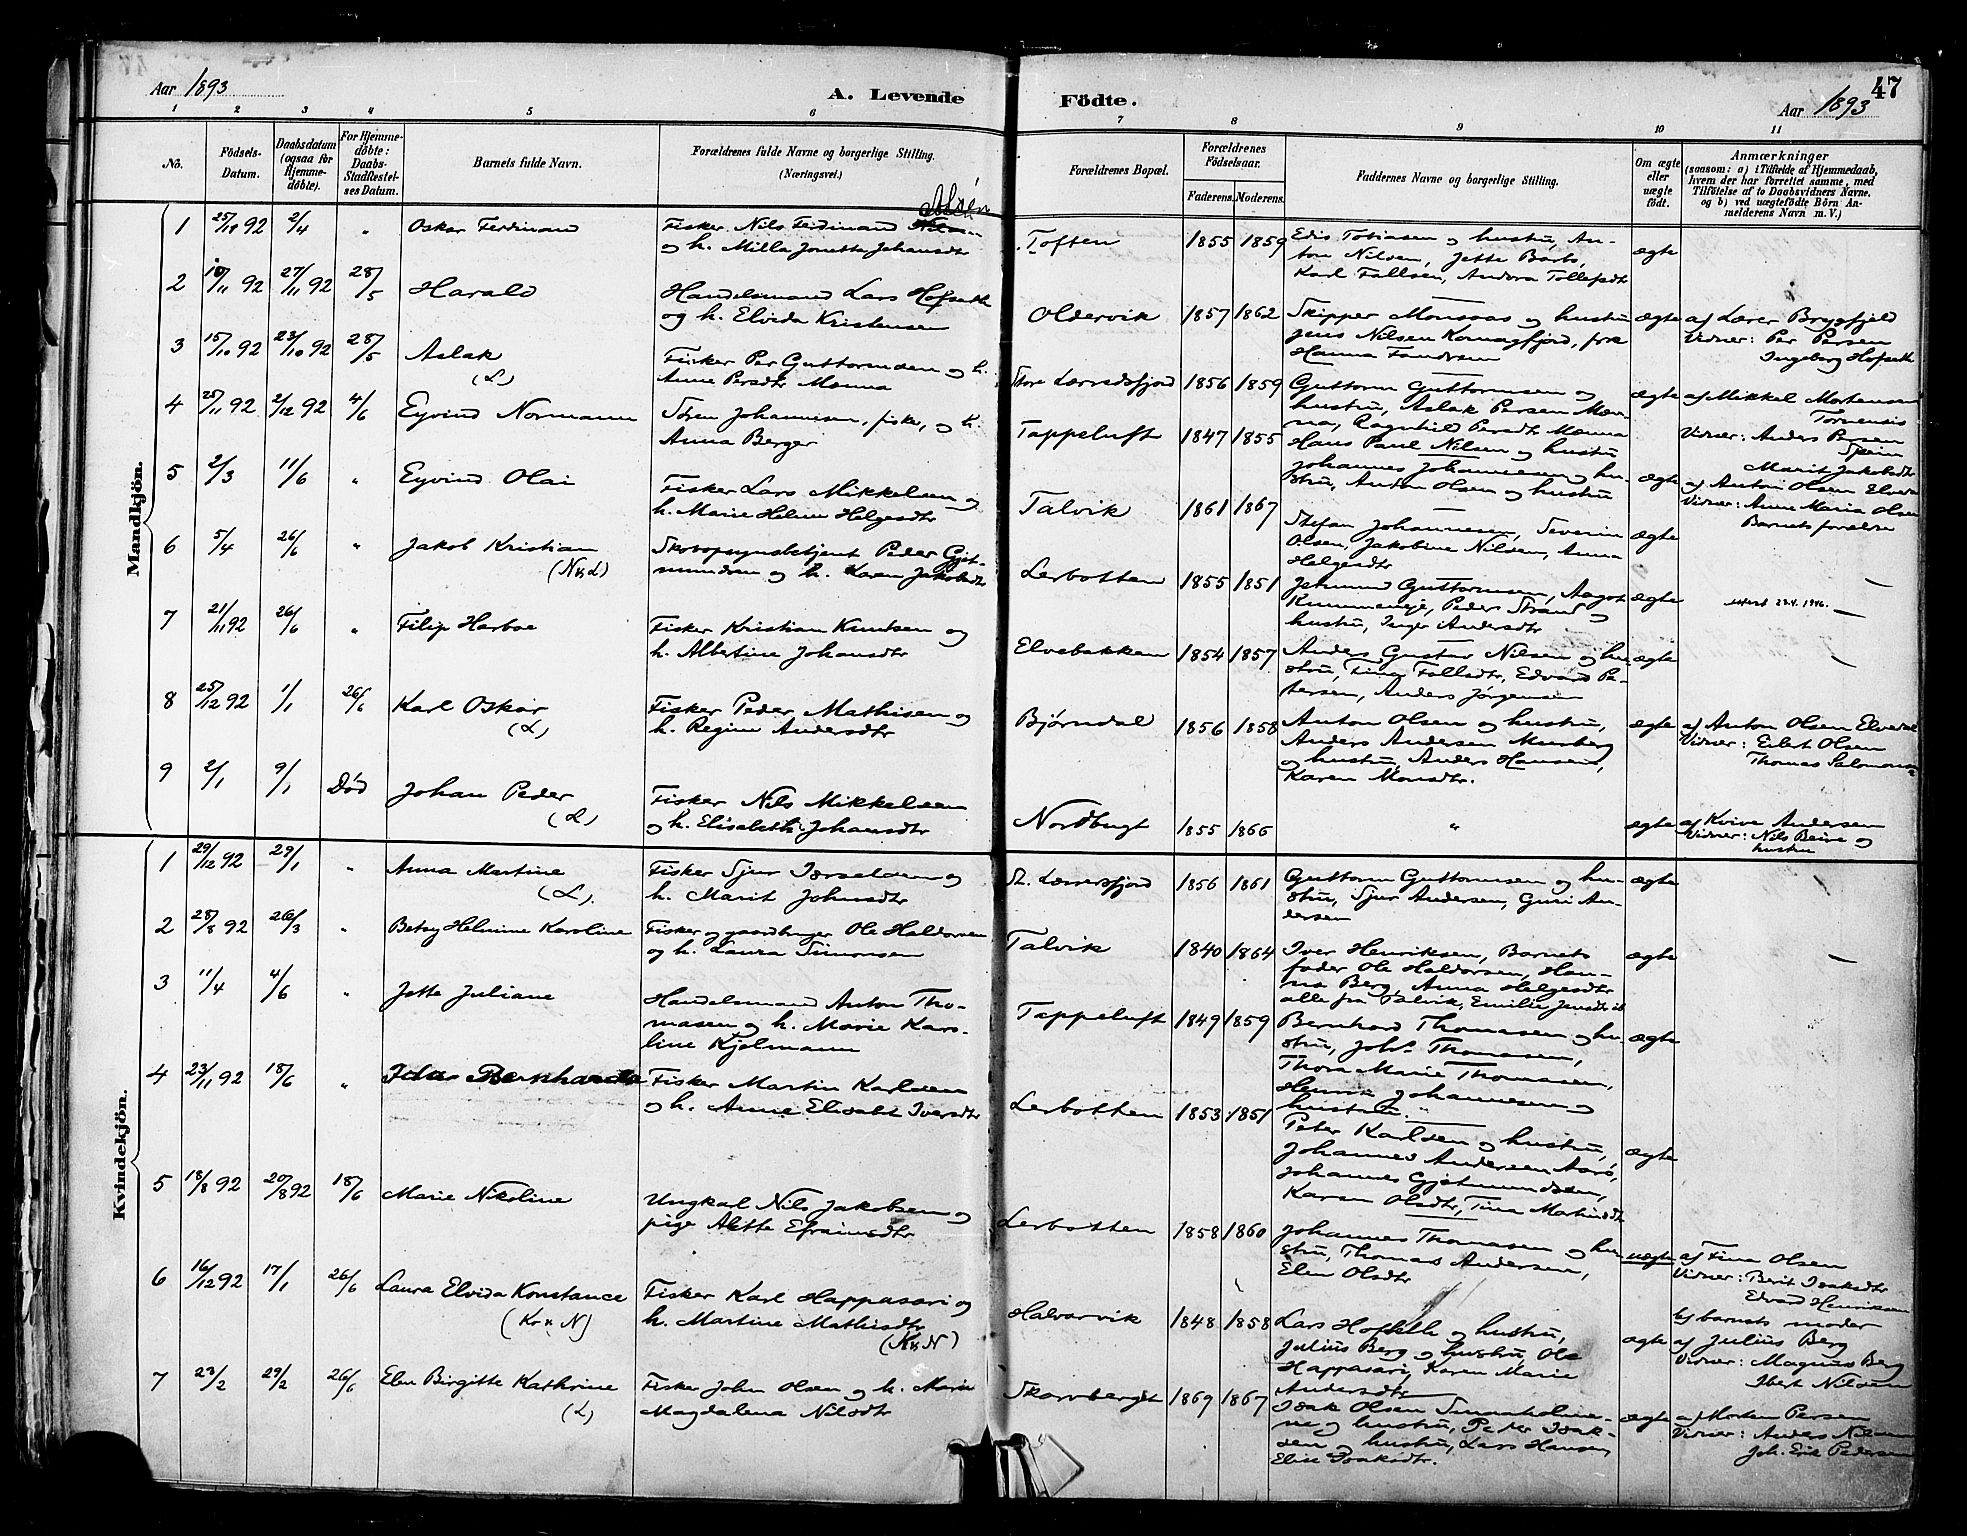 47
Aar 1893
A. Levende Födte.
Aar 1893
1 2 3 4 5 6 7 8 9 10 11
No.
Födsels-Datum.
Daabsdatum (ogsaa for Hjemme-döbte).
For Hjemme-döbte: Daabs-Stadfæstel-ses Datum.
Barnets fulde Navn.
Forældrenes fulde Navne og borgerlige Stilling.
(Næringsvei.)
Forældrenes Bopæl.
Forældrenes Födselsaar.
Faderens. Moderens.
Faddernes Navne og borgerlige Stilling.
Om ægte eller uægte födt.
Anmærkninger
(saasom: a) i Tilfælde af Hjemmedaab,
hvem der har forrettet samme, med
Tilföielse af to Daabsvidners Navne,
og b) ved uægtefödte Börn An-
melderens Navn m. V.)
Mandkjön.
1 25/10 92 2/4 " Oskar Ferdinand
Fisker Nils Ferdinand
og h. Milla Jonetta Johansdtr
Toften 1855 1859
Edis Tobiasen og hustru, An-
ton Nilsen, Jette Barbo,
Karl Fallsen, Andora Tollefsdtr
ægte
2 18/11 92 27/11 92 28/5 Harald
Handelsmand Lars Hofseth
og h. Elvida Kristensen
Oldervik 1857 1862
Skipper Monsaas og hustru
Jens Nilsen Korsnagfjord, frk
Hanna
ægte
af Lærer Brygfjeld
Vidner: Per Persen
Ingeborg Hofseth
3 15/10 92 23/10 92 28/5 Aslak
(L)
Fisker Per Guttormsen og h.
Anne Persdtr Mænna
Store Lærredsfjord 1856 1859
Guttorm Guttormsen og
hustru, Aslak Persen Mæn-
na, Ragnhild Persdtr Mænna
ægte
af Mikkel Mortensen
Vidner: Anders Persen
Marit Jakobsdtr
4 25/11 92 2/12 92 4/6 Eyvind Normann
Søren Johannesen, fisker, og h.
Anna Berger
Tappeluft 1847 1855
Hans Paul Nilsen og hustru
Johannes Johannesen og hu-
stru, Anton Olsen og hustru
ægte
af Anton Olsen Elvedal
Vidner: Anne Maria Olsen
Barnets forældre
5 2/3 11/6 " Eyvind Olai
Fisker Lars Mikkelsen og
h. Marie Helene Helgesdtr
Talvik 1861 1867
Stefan Johannesen, Severin
Olsen, Jakobine Nilsen, Anna
Helgesdtr
ægte
6 5/4 26/6 " Jakob Kristian
(N&L)
Skovopsynsbetjent Peder Gjet-
mundsen og h. Karen Jakobsdtr
Lerbotten 1855 1851
Guttormsen, Aagot
Kummeneje, Peder Strand og
hustru, Inger Andersdtr
ægte
7 21/11 92 26/6 " Filip Harboe
Fisker Kristian Knutsen og
h. Albertine Johansdtr
Elvebakken 1854 1857
Anders Gustav Nilsen og hu-
stru, Fina Fallsdtr, Edvard Pe-
tersen, Anders Jørgensen
ægte
8 25/12 92 1/1 26/6 Karl Oskar
(L)
Fisker Peder Mathisen og
h. Regine Andersdtr
Bjørndal 1856 1858
Anton Olsen og hustru,
Anders Andersen Murberg
og hustru, Anders Hansen,
Karen Monsdtr.
ægte
af Anton Olsen Elvedal
Vidner: Eilert Olsen
Thomas Salomonsen
9 2/1 9/1 Død Johan Peder
(L)
Fisker Nils Mikkelsen
og h. Elisabeth Johansdtr
Nordbugt 1855 1866 " ægte
af Kvive Andersen
Vidner: Nils Beive og
hustru
Kvindekjön.
1 29/12 92 29/1 " Anna Martine
(L).
Fisker Sjur Israelsen og
h. Marit Johnsdtr
St. Lærresfjord 1856 1861
Guttorm Guttormsen og hu-
stru, Sjur Andersen, Guri An-
dersen
ægte
2 28/8 92 26/3 " Betsy Helmine Karoline
Fisker og gaardbruger Ole Haldorsen
og h. Laura Simonsen
Talvik 1840 1864
Iver Henriksen, Barnets
fader Ole Haldorsen, Han-
na Berg, Anna Helgesdtr
alle fra Talvik, Emilie
ægte
3 11/4 4/6 " Jette Juliane
Handelsmand Anton Tho-
masen og h. Marie Karo-
line Kjelmann
Tappeluft 1849 1859
Bernhard Thomasen og hu-
stru, Johs. Thomasen,
Thora Marie Thomasen,
Henrik Johannesen og
hustru.
ægte
4 23/11 92 18/6 " Ida Bernharda
Fisker Martin Karlsen
og h. Anne Elisabet Iversdtr
Lerbotten 1853 1851
Peter Karlsen og hustru,
Johannes Andersen Aarø,
Johannes Gjetmundsen,
Karen Olsdtr, Tina Martinsdtr
ægte
5 18/8 92 20/8 92 18/6 Marie Nikoline
Ungkarl Nils Jakobsen og
pige Alette Efraimsdtr
Lerbotten 1858 1860
Johannes Thomasen og hu-
stru, Thomas Andersen,
Elen Olsdtr
uægte
af Fina Olsen
Vidner: Berit Isaksdtr
Edvard Henriksen
b) barnets moder
6 16/12 92 17/1 26/6 Laura Elvida Konstance
(Kv & N)
Fisker Karl Happasari og
h. Martine Mathisdtr
(Kv N)
Halvarvik 1848 1858
Lars Hofseth og hustru,
Julius Berg og hustru, Ole
Happasari, Karen Marie
Andersdtr
ægte
af Julius Berg
Vidner: Magnus Berg
Ibert Nilsen
7 23/2 29/2 26/6 Elen Birgitte Kathrine
(L)
Fisker John Olsen og h. Marie
Magdalena Nilsdtr
Skarvberget 1869 1867
Isak Olsen
og hustru, Peter Isak-
sen og hustru, Lars Hansen,
Elise Isaksdtr.
ægte
af Morten Persen
Vidner: Anders Nilsen
Joh. Erik Pedersen